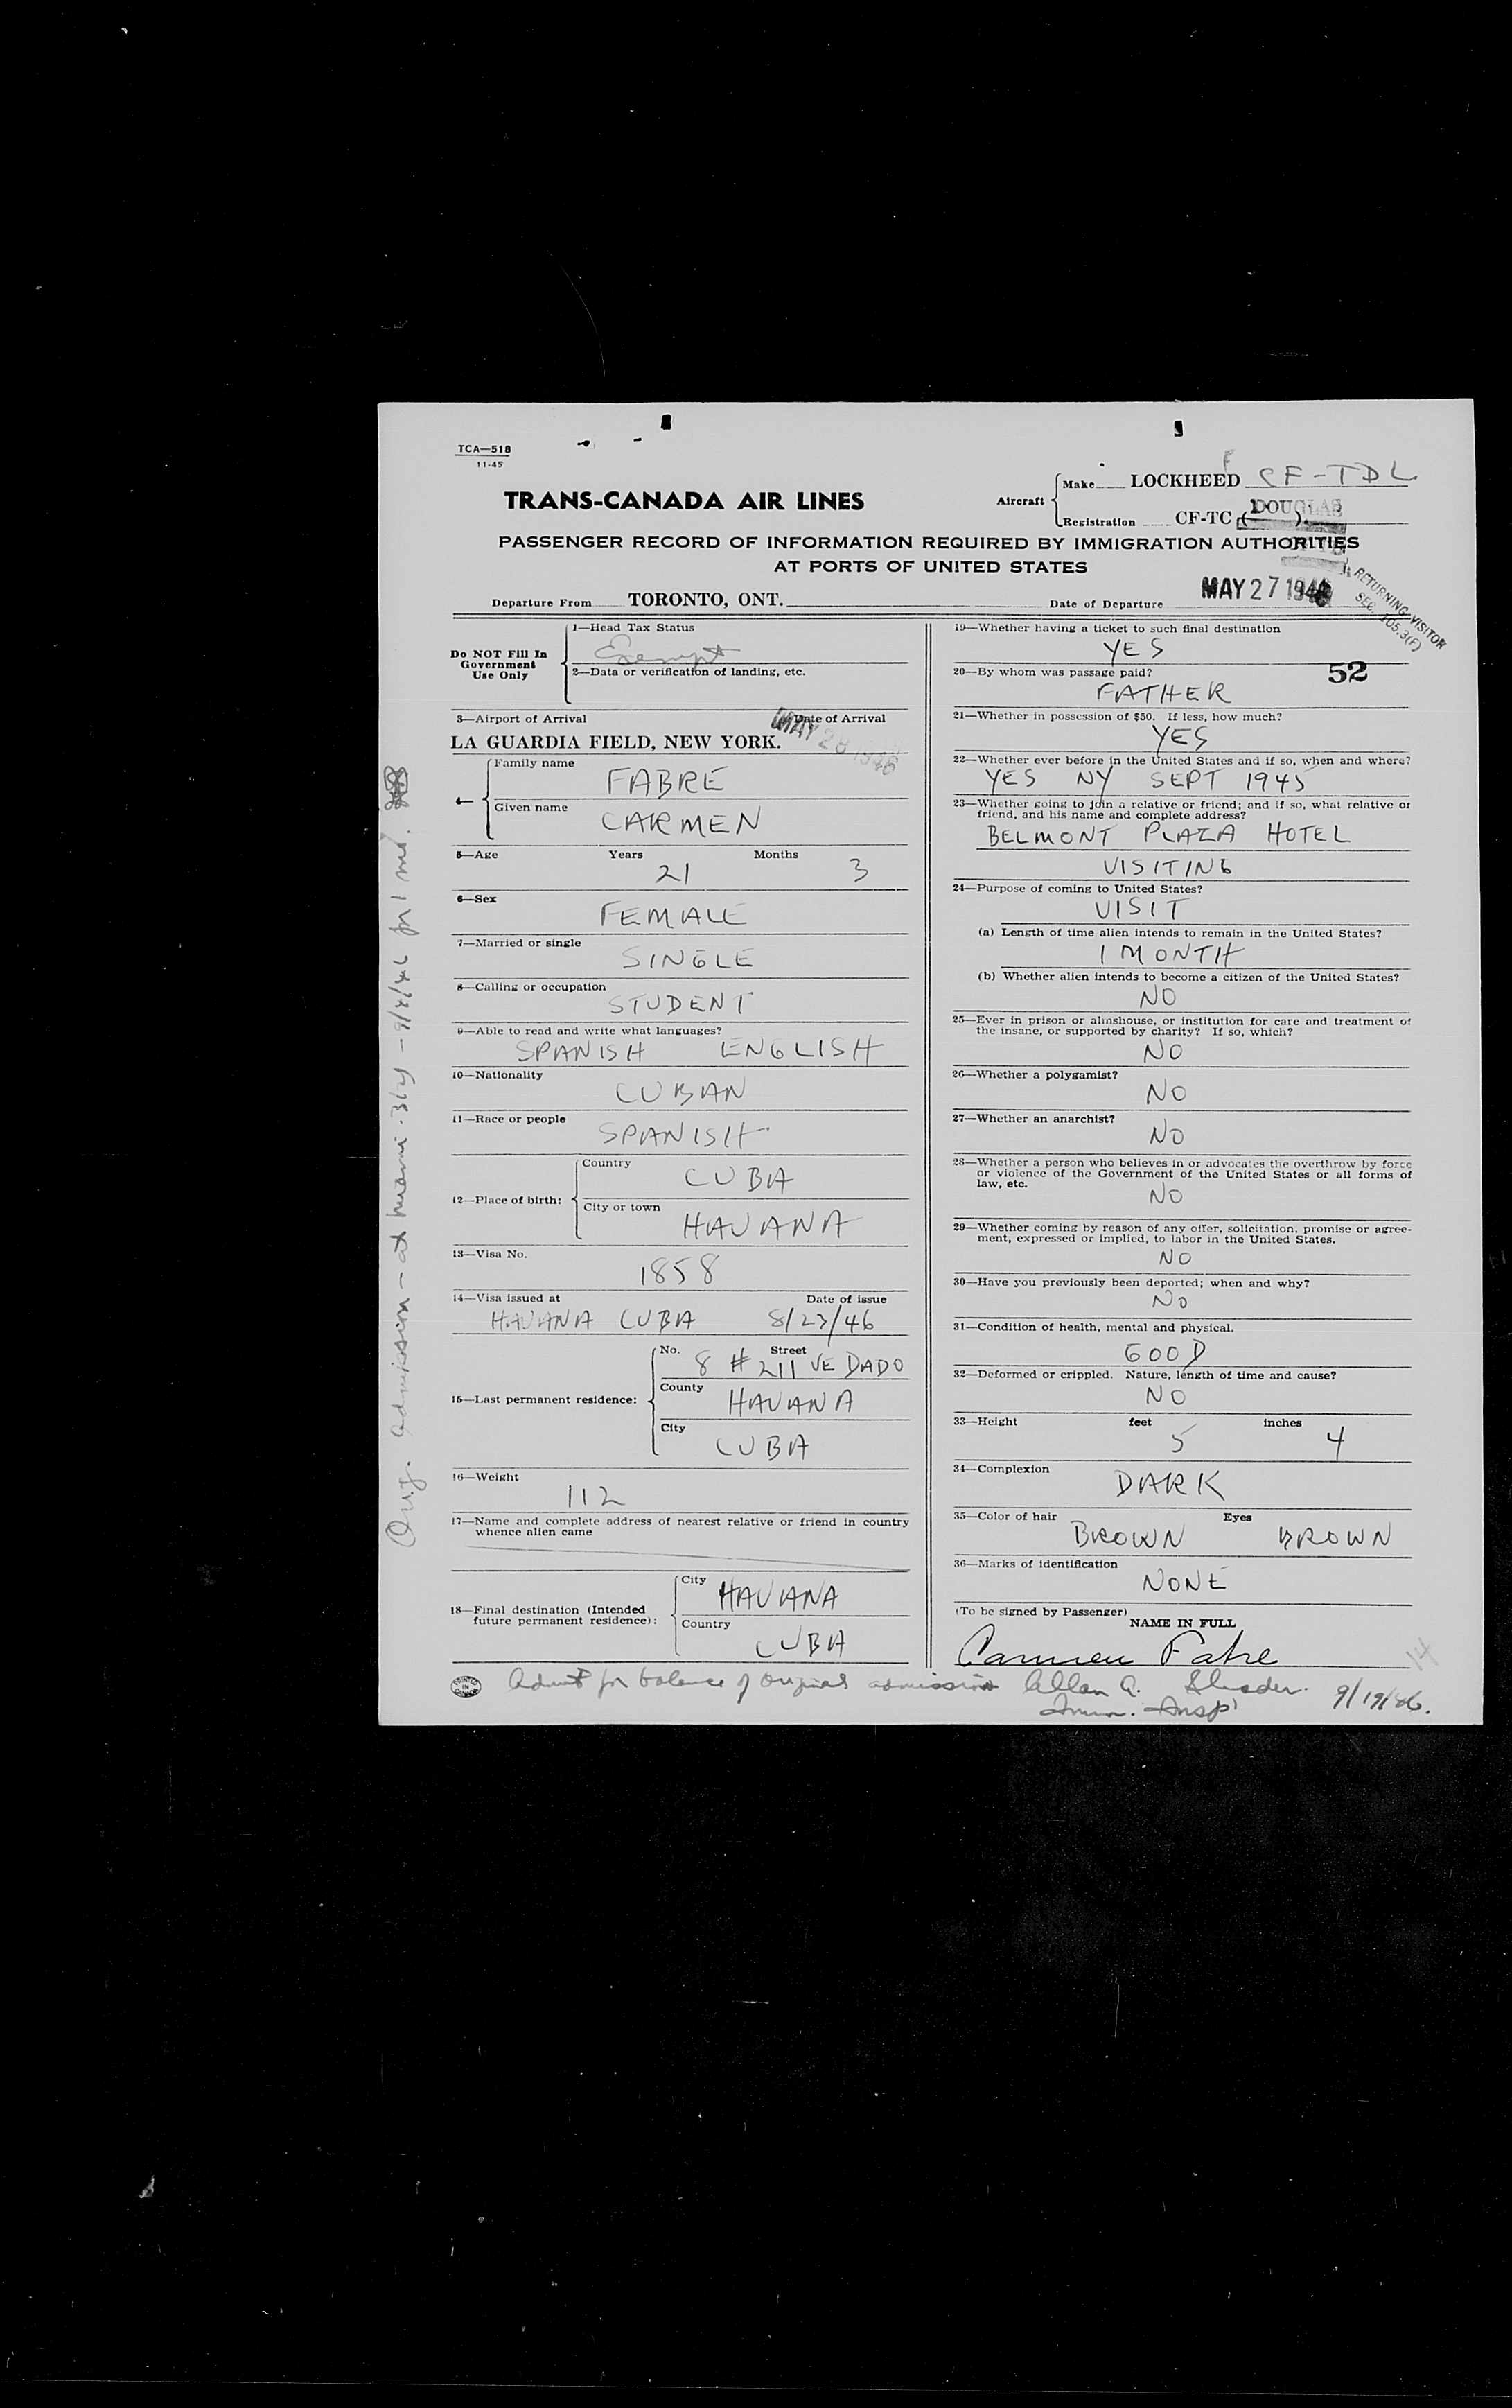 TCA—518
11-45
TRANS-CANADA AIR LINES
Aircraft
Make LOCKHEED CF-TDL
F
Registration CF-TC ( ).
DOUGLAS
PASSENGER RECORD OF INFORMATION REQUIRED BY IMMIGRATION AUTHORITIES
AT PORTS OF UNITED STATES
Departure From TORONTO, ONT.
Date of Departure MAY 27 1946
RETURNING VISITOR
SEC. 105.3(F)
Do NOT Fill In
Government
Use Only
1—Head Tax Status
Exempt
2—Data or verification of landing, etc.
3—Airport of Arrival Date of Arrival
LA GUARDIA FIELD, NEW YORK. MAY 28 1946
4—
Family name
FABRE
Given name
CARMEN
5—Age Years Months
21 3
6—Sex
FEMALE
7—Married or single
SINGLE
8—Calling or occupation
STUDENT
9—Able to read and write what languages?
SPANISH ENGLISH
10—Nationality
CUBAN
11—Race or people
SPANISH
12—Place of birth:
Country
CUBA
City or town
HAVANA
13—Visa No.
1858
14—Visa issued at Date of issue
HAVANA CUBA 8/23/46
15—Last permanent residence:
No. Street
8 # 211 VEDADO
County
HAVANA
City
CUBA
16—Weight
112
17—Name and complete address of nearest relative or friend in country
whence alien came
18—Final destination (Intended
future permanent residence):
City
HAVANA
Country
CUBA
19—Whether having a ticket to such final destination
YES
52
20—By whom was passage paid?
FATHER
21—Whether in possession of $50. If less, how much?
YES
22—Whether ever before in the United States and if so, when and where?
YES NY SEPT 1945
23—Whether going to join a relative or friend; and if so, what relative or
friend, and his name and complete address?
BELMONT PLAZA HOTEL
VISITING
24—Purpose of coming to United States?
VISIT
(a) Length of time alien intends to remain in the United States?
1 MONTH
(b) Whether alien intends to become a citizen of the United States?
NO
25—Ever in prison or almshouse, or institution for care and treatment of
the insane, or supported by charity? If so, which?
NO
26—Whether a polygamist?
NO
27—Whether an anarchist?
NO
28—Whether a person who believes in or advocates the overthrow by force
or violence of the Government of the United States or all forms of
law, etc.
NO
29—Whether coming by reason of any offer, solicitation, promise or agree-
ment, expressed or implied, to labor in the United States.
NO
30—Have you previously been deported; when and why?
NO
31—Condition of health, mental and physical.
GOOD
32—Deformed or crippled. Nature, length of time and cause?
NO
33—Height feet inches
5 4
34—Complexion
DARK
35—Color of hair Eyes
BROWN BROWN
36—Marks of identification
NONE
(To be signed by Passenger)
NAME IN FULL
Carmen Fabre
14
Admit for balance of original admission Allan A.
Imm. Insp 9/19/46.
Orig. admission - at Miami - 9/2/46 for 1 mo.